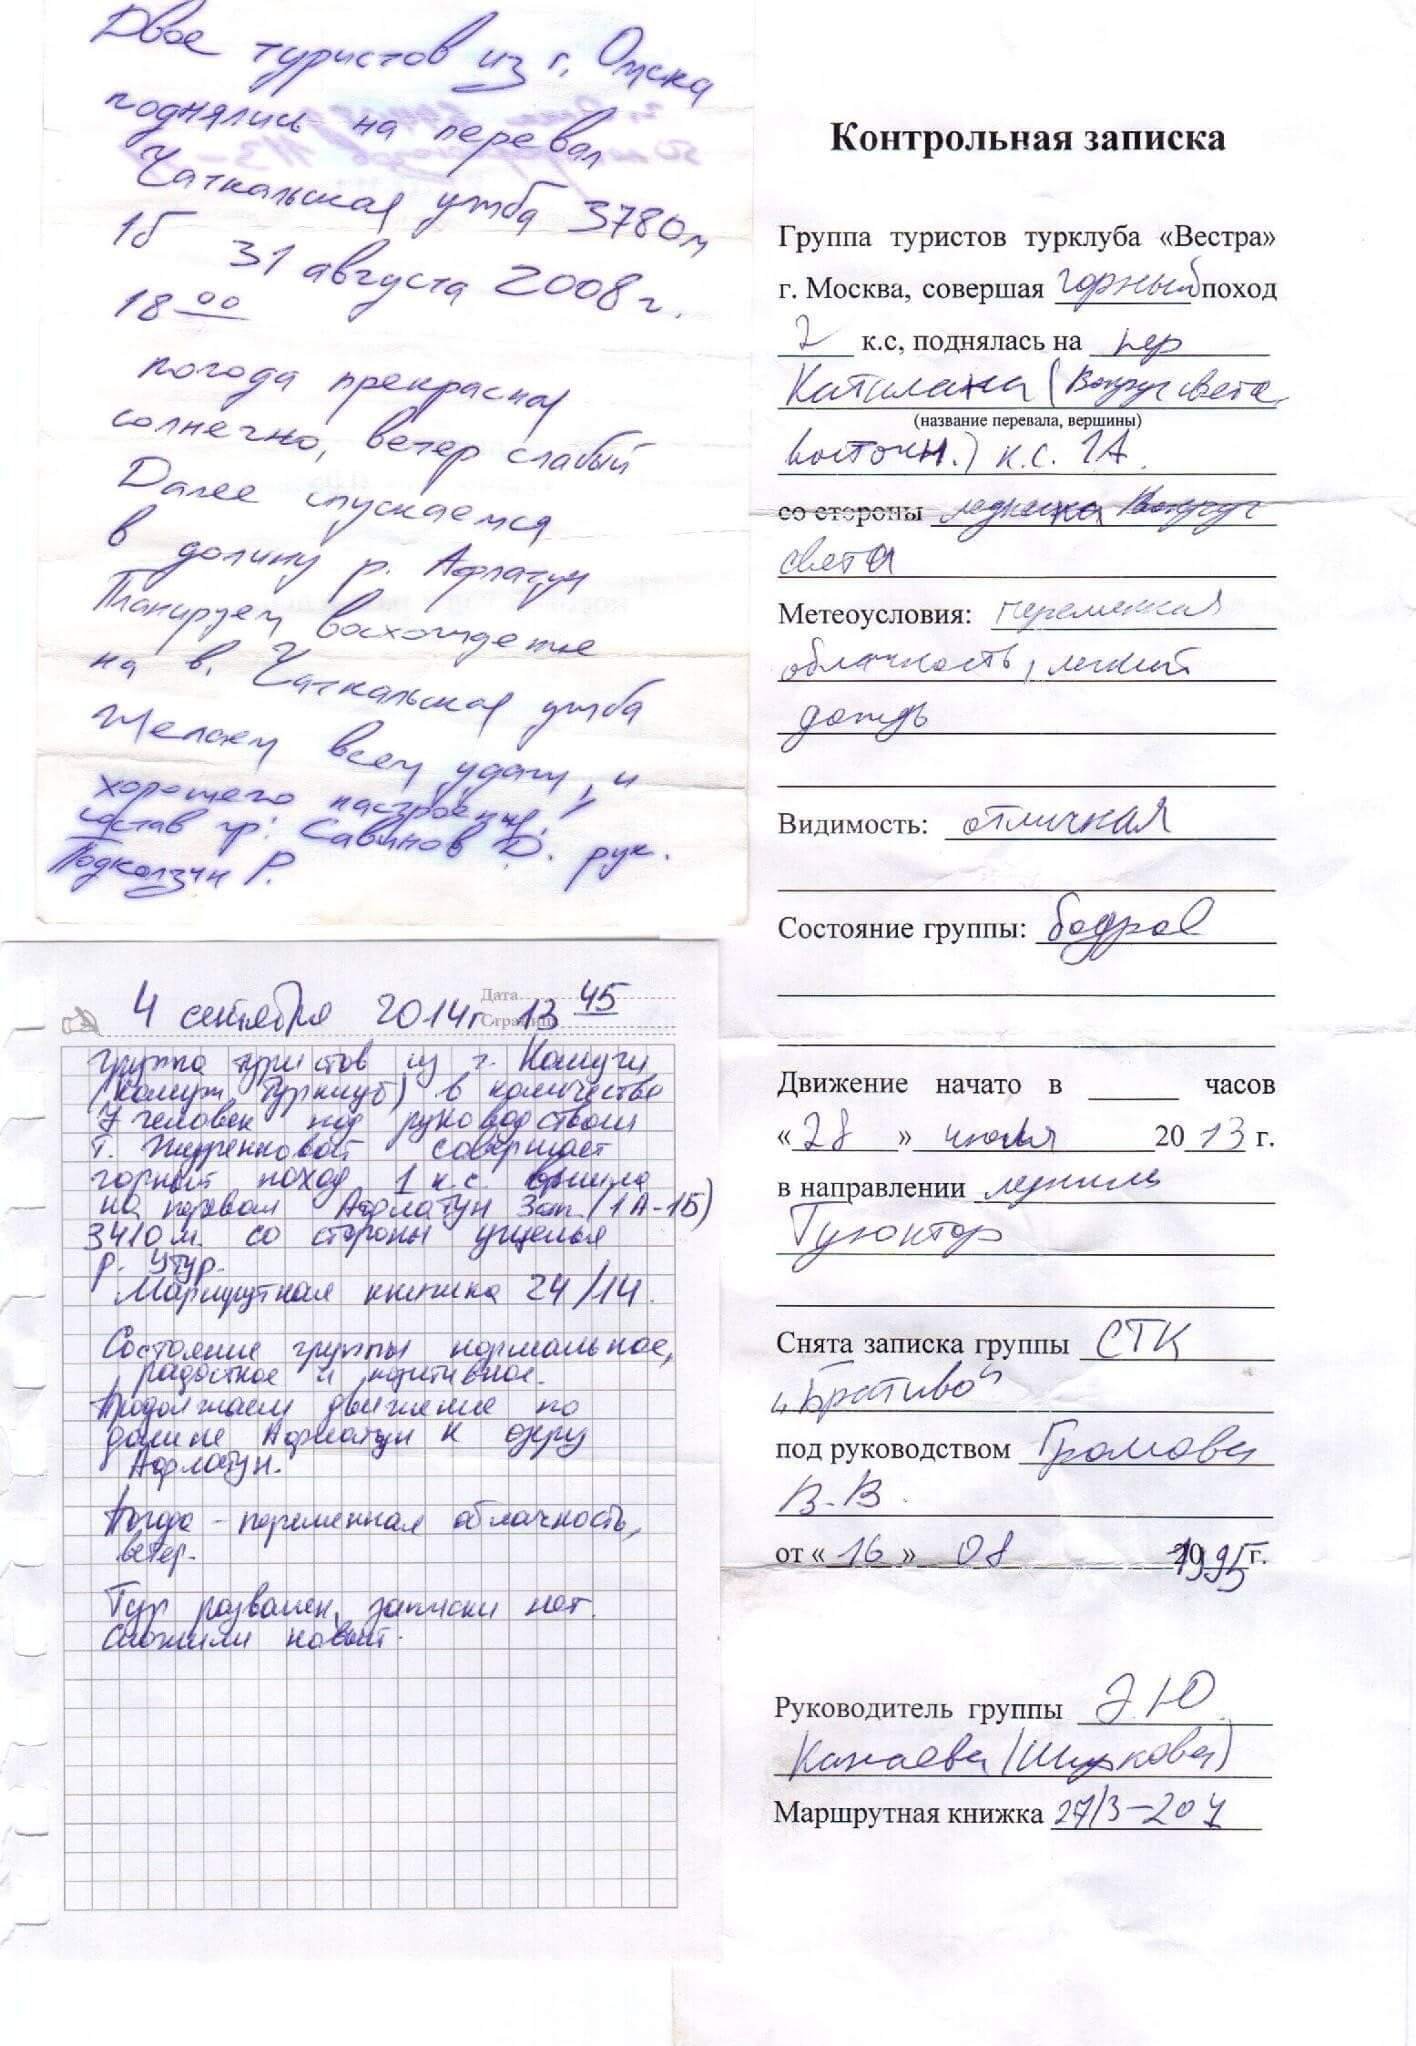 Двое туристов из г. Омска
поднялись на перевал
Чаткальская ужба 3780м
1б 31 августа 2008г.
18 00
погода прекрасная
солнечно, ветер слабый
Далее спускаемся
в долину р. Афлатун
Планируем восхождение
на в. Чаткальская ужба
Желаем всем удачи, и
хорошего настроения!
состав гр: Савинов Д. рук.
Подколзин Р.
Дата
Страница
4 сентября 2014г 13 45
группа туристов из г. Калуги
(Калуж. Турклуб) в количестве
7 человек под руководством
Т. Журенковой совершает
горный поход 1 к.с. вышла
на перевал Афлатун Зап. (1А-1Б)
3410м. со стороны ущелья
р. Утур.
Маршрутная книжка 24/14.
Состояние группы нормальное,
радостное и позитивное.
Продолжаем движение по
долине Афлатун к озеру
Афлатун.
Погода - переменная облачность,
ветер.
Тур развален, записки нет.
Сложили новый.
Контрольная записка
Группа туристов турклуба «Вестра»
г. Москва, совершая горный поход
2 к.с, поднялась на пер
(Вокруг света
(название перевала, вершины)
восточн.) к.с. 1А.
со стороны ледника Вокруг
света
Метеоусловия: переменная
облачность, легкий
дождь
Видимость: отличная
Состояние группы: бодрое
Движение начато в часов
«28» июля 2013 г.
в направлении
Тузоктор
Снята записка группы СТК
"Бративо"
под руководством Громова
В.В.
от «16» 08 1995 г.
Руководитель группы Э.Ю.
Канаева (Широкова)
Маршрутная книжка 27/3-204